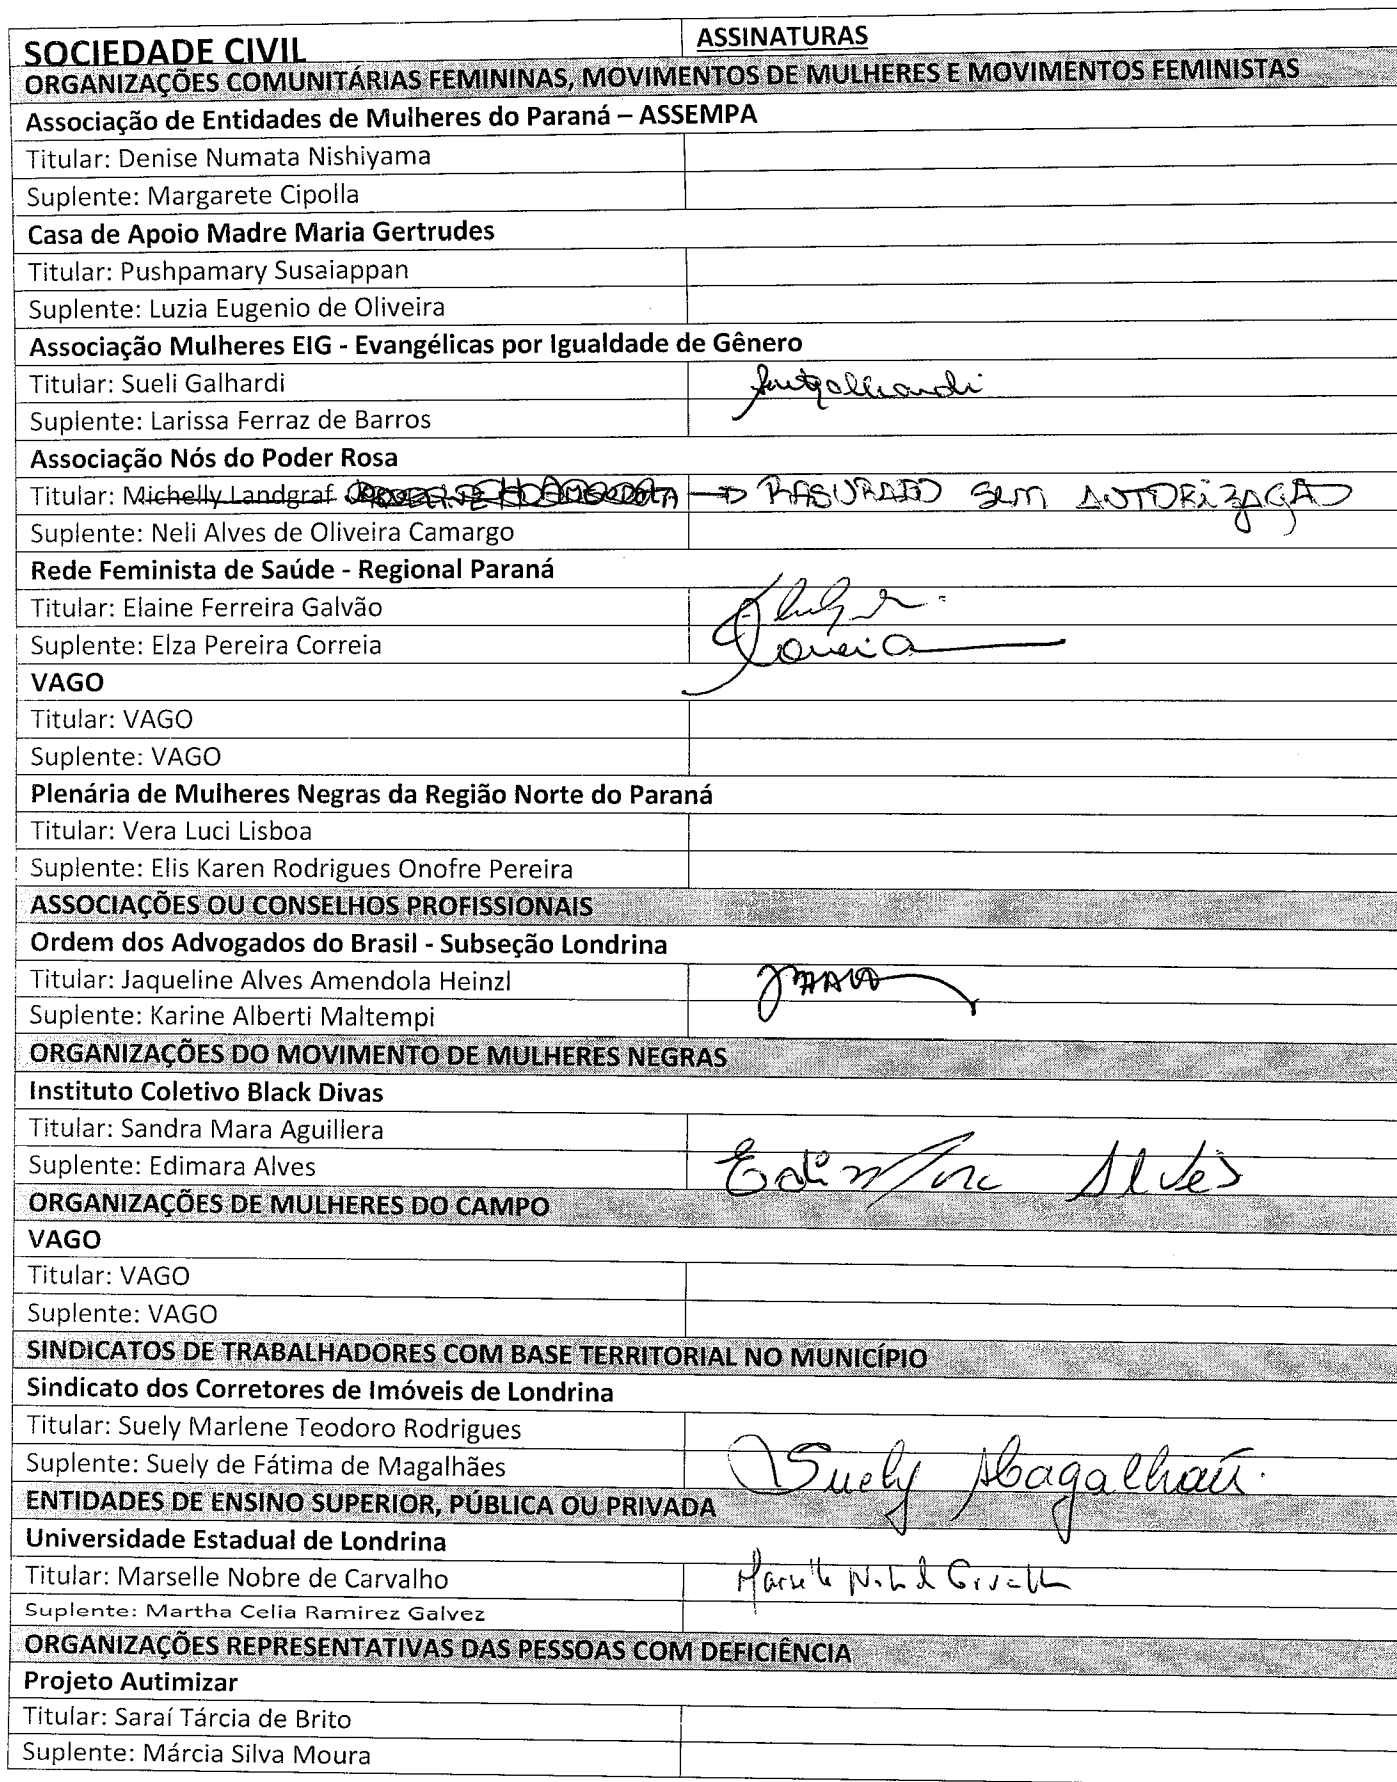 SOCIEDADE CIVIL ASSINATURAS
ORGANIZAÇÕES COMUNITÁRIAS FEMININAS, MOVIMENTOS DE MULHERES E MOVIMENTOS FEMINISTAS
Associação de Entidades de Mulheres do Paraná – ASSEMPA
Titular: Denise Numata Nishiyama
Suplente: Margarete Cipolla
Casa de Apoio Madre Maria Gertrudes
Titular: Pushpamary Susaiappan
Suplente: Luzia Eugenio de Oliveira
Associação Mulheres EIG - Evangélicas por Igualdade de Gênero
Titular: Sueli Galhardi
Suplente: Larissa Ferraz de Barros
Associação Nós do Poder Rosa
Titular: Michelly Landgraf → RASURADO SEM AUTORIZAÇÃO
Suplente: Neli Alves de Oliveira Camargo
Rede Feminista de Saúde - Regional Paraná
Titular: Elaine Ferreira Galvão
Suplente: Elza Pereira Correia Correia
VAGO
Titular: VAGO
Suplente: VAGO
Plenária de Mulheres Negras da Região Norte do Paraná
Titular: Vera Luci Lisboa
Suplente: Elis Karen Rodrigues Onofre Pereira
ASSOCIAÇÕES OU CONSELHOS PROFISSIONAIS
Ordem dos Advogados do Brasil - Subseção Londrina
Titular: Jaqueline Alves Amendola Heinzl
Suplente: Karine Alberti Maltempi
ORGANIZAÇÕES DO MOVIMENTO DE MULHERES NEGRAS
Instituto Coletivo Black Divas
Titular: Sandra Mara Aguillera
Suplente: Edimara Alves Edimara Alves
ORGANIZAÇÕES DE MULHERES DO CAMPO
VAGO
Titular: VAGO
Suplente: VAGO
SINDICATOS DE TRABALHADORES COM BASE TERRITORIAL NO MUNICÍPIO
Sindicato dos Corretores de Imóveis de Londrina
Titular: Suely Marlene Teodoro Rodrigues
Suplente: Suely de Fátima de Magalhães Suely Magalhães.
ENTIDADES DE ENSINO SUPERIOR, PÚBLICA OU PRIVADA
Universidade Estadual de Londrina
Titular: Marselle Nobre de Carvalho Marselle Nobre de Carvalho
Suplente: Martha Celia Ramirez Galvez
ORGANIZAÇÕES REPRESENTATIVAS DAS PESSOAS COM DEFICIÊNCIA
Projeto Autimizar
Titular: Saraí Tárcia de Brito
Suplente: Márcia Silva Moura